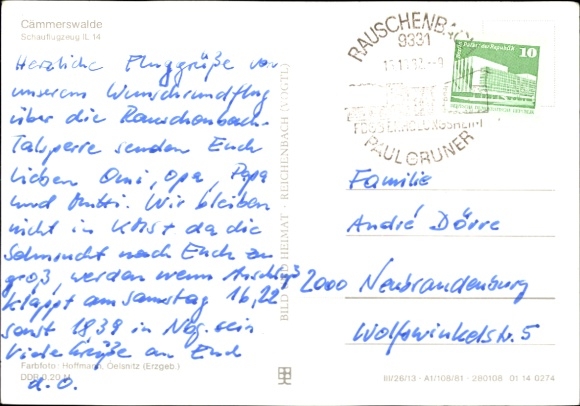 Cämmerswalde
Schauflugzeug IL 14
Herzliche Fluggrüße von
unserem Wunschrundflug
über die Rauschenbach-
Talsperre senden Euch
lieben Omi, Opa, Papa
und Mutti. Wir bleiben
nicht in KMSt da die
Sehnsucht nach Euch zu
groß, werden wenn Anschluß
klappt am Samstag 16,22
sonst 1839 in Nbg. sein
Viele Grüße an Euch
d. O.
Farbfoto: Hoffmann, Oelsnitz (Erzgeb.)
DDR 0,20 M
BILD UND HEIMAT · REICHENBACH (VOGTL)
RAUSCHENBACH
9331
FDGB-ERHOLUNGSHEIM
PAUL GRUNER
10
Familie
André Dörre
2000 Neubrandenburg
Wolfswinkelstr. 5
III/26/13 · A1/108/81 · 280108 01 14 0274